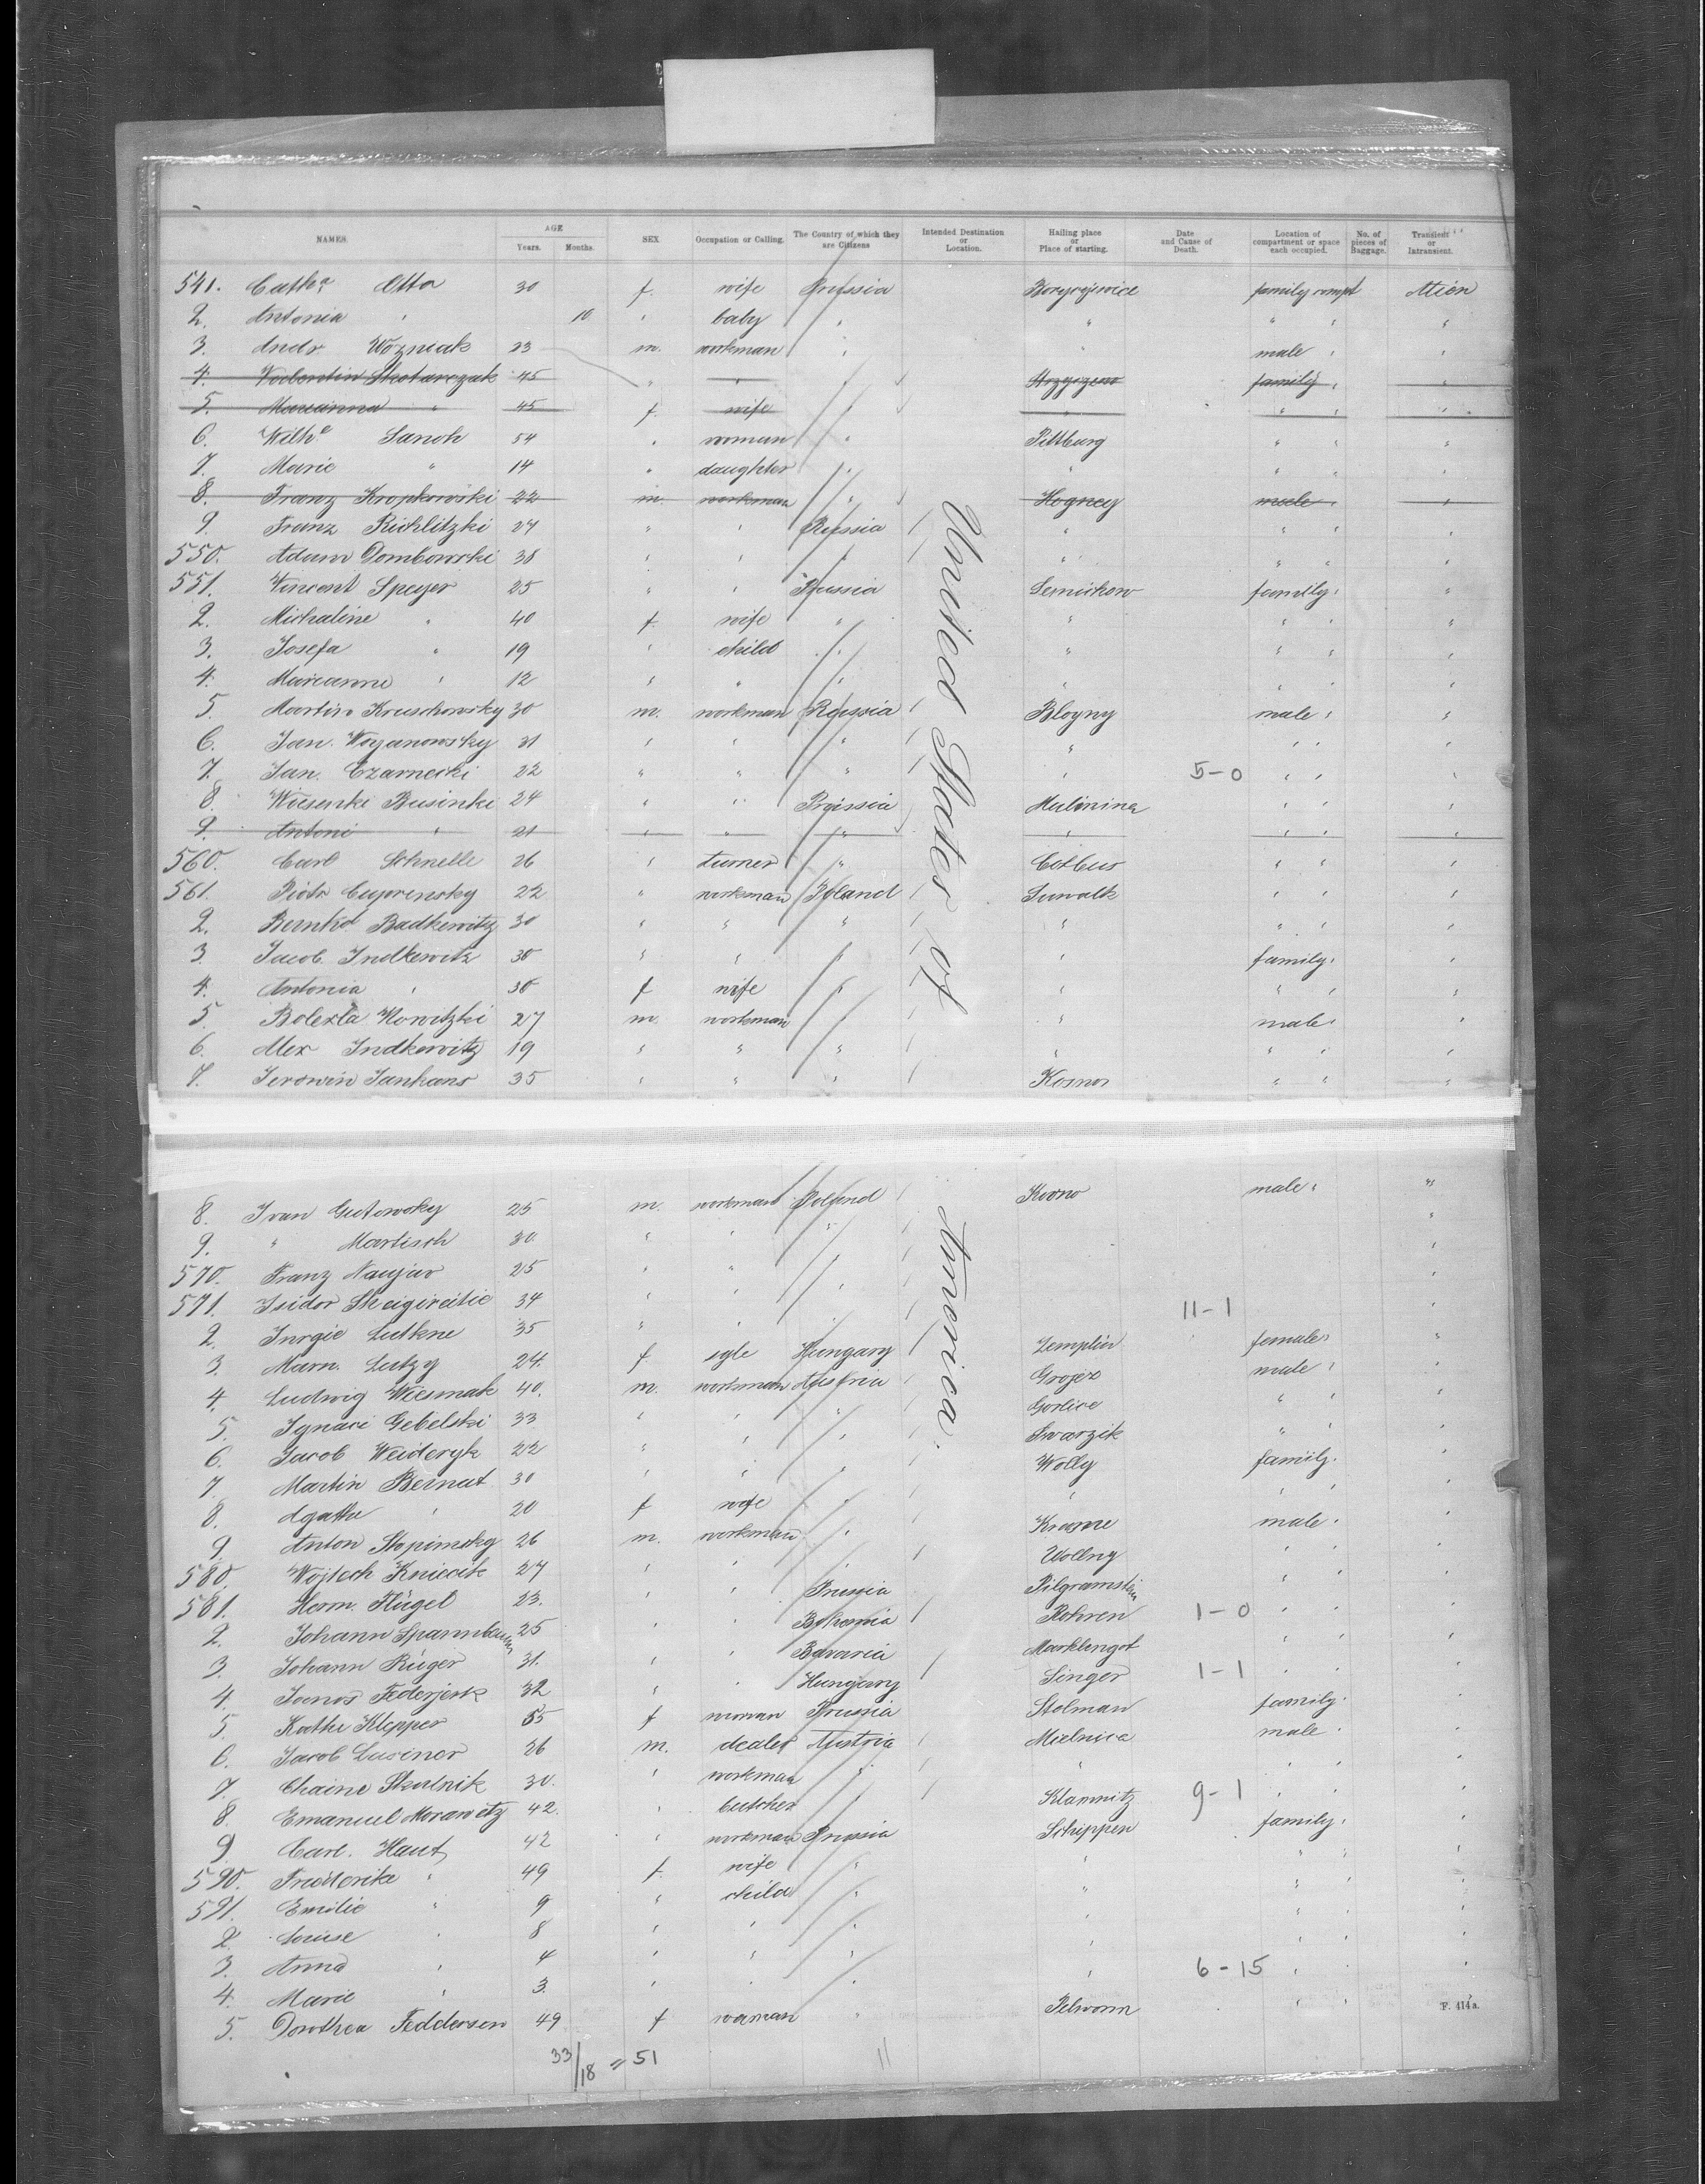 NAMES. AGE Years. Months. SEX Occupation or Calling. The Country of which they are Citizens Intended Destination or Location. Hailing place or Place of starting. Date and Cause of Death. Location of compartment or space each occupied. No. of pieces of Baggage. Transient or Intransient.
541. Cathe Otta 30 f. wife Prussia family compt
2. Antonia " 10 " baby " " " " "
3. Andr. Wozniak 23 m. workman " " male " "
4. Valentin Skotarczak 45 " " " family " "
5. Marianna " 45 f. wife " " " " "
6. Wilhe Janoh 54 " woman " Pittburg " " "
7. Marie " 14 " daughter " " " " "
8. Franz Kropkowski 22 m. workman " Hogney male " "
9. Franz Richlitzki 27 " " Russia " " " "
550. Adam Dombowski 38 " " " " " " "
551. Vincent Speyer 25 " " Prussia Semickow family " "
2. Michaline " 40 f. wife " " " " "
3. Josefa " 19 " child " " " " "
4. Marianne " 12 " " " " " " "
5. Martin Kruschowsky 30 m. workman Russia Bloyny male " "
6. Jan. Woyanowsky 31 " " " " " " "
7. Jan. Czarnecki 22 " " " " 5-0 " " "
8. Wiesenki Businki 24 " " Prussia Mulinina " " "
9. Antoni " 21 " " " " " " "
560. Carl Schnelle 26 " turner " Cotbus " " "
561. Piotr Cuprinsky 22 " workman Poland Suwalk " " "
2. Bernhd Badkewitz 30 " " " " " " "
3. Jacob Indkewitz 30 " " " " family " "
4. Antonia " 30 f wife " " " " "
5. Nowitzki 27 m. workman " " male " "
6. Alex Indkewitz 19 " " " " " " "
7. Jankans 35 " " " Kosno " " "
United States of
8. Ivan Gutowsky 25 m. workman Poland Kovno male " "
9. " Martisch 30. " " " "
570. Franz Naujar 25 " " " "
571. Isidor 34 " " " 11-1 "
2. Jurgie Lutkne 35 " " " "
3. Marn. Lutzy 24. f sgle Hungary Zemplin female " "
4. Ludwig Wiesmak 40. m. workman Austria Grojez male " "
5. Ignaci Gebelski 33 " " " Gorlice " "
6. Jacob Weideryk 22 " " " Swarzik " " "
7. Martin Bernat 30 " " " Wolly family. "
8. Agathe " 20 f wife " " " " "
9. Anton Stopinsky 26 m. workman " male " "
580. Wojtech Kniecik 27 " " " Wollny " " "
581. Herm. Flügel 23. " " Prussia " " "
2. Johann Spannbauer 25 " " Bohemia Rohren 1-0 " " "
3. Johann Rüger 31. " " Bavaria " " "
4. Janos Federjesk 32 " " Hungary Singer 1-1 " " "
5. Kathe Klepper 65 f woman Prussia Stolman family "
6. Jacob Lusiner 26 m. dealer Austria Mielnica male "
7. Chaine Skulnik 30. " workman " " " " "
8. Emanuel Morawetz 42. " butcher " Klamnitz 9-1 " " "
9. Carl. Haut 42 " workman Prussia Schippen family " "
590. Frederike " 49 f. wife " " " " "
591. Emilie " 9 " child " " " " "
2. Louise " 8 " " " " " " "
3. Anna " 4 " " " " " " "
4. Marie " 3. " " " " 6-15 " "
5. Dorothea Feddersen 49 f woman " Pelworm " " "
America.
F. 414a.
33/18 = 51
11